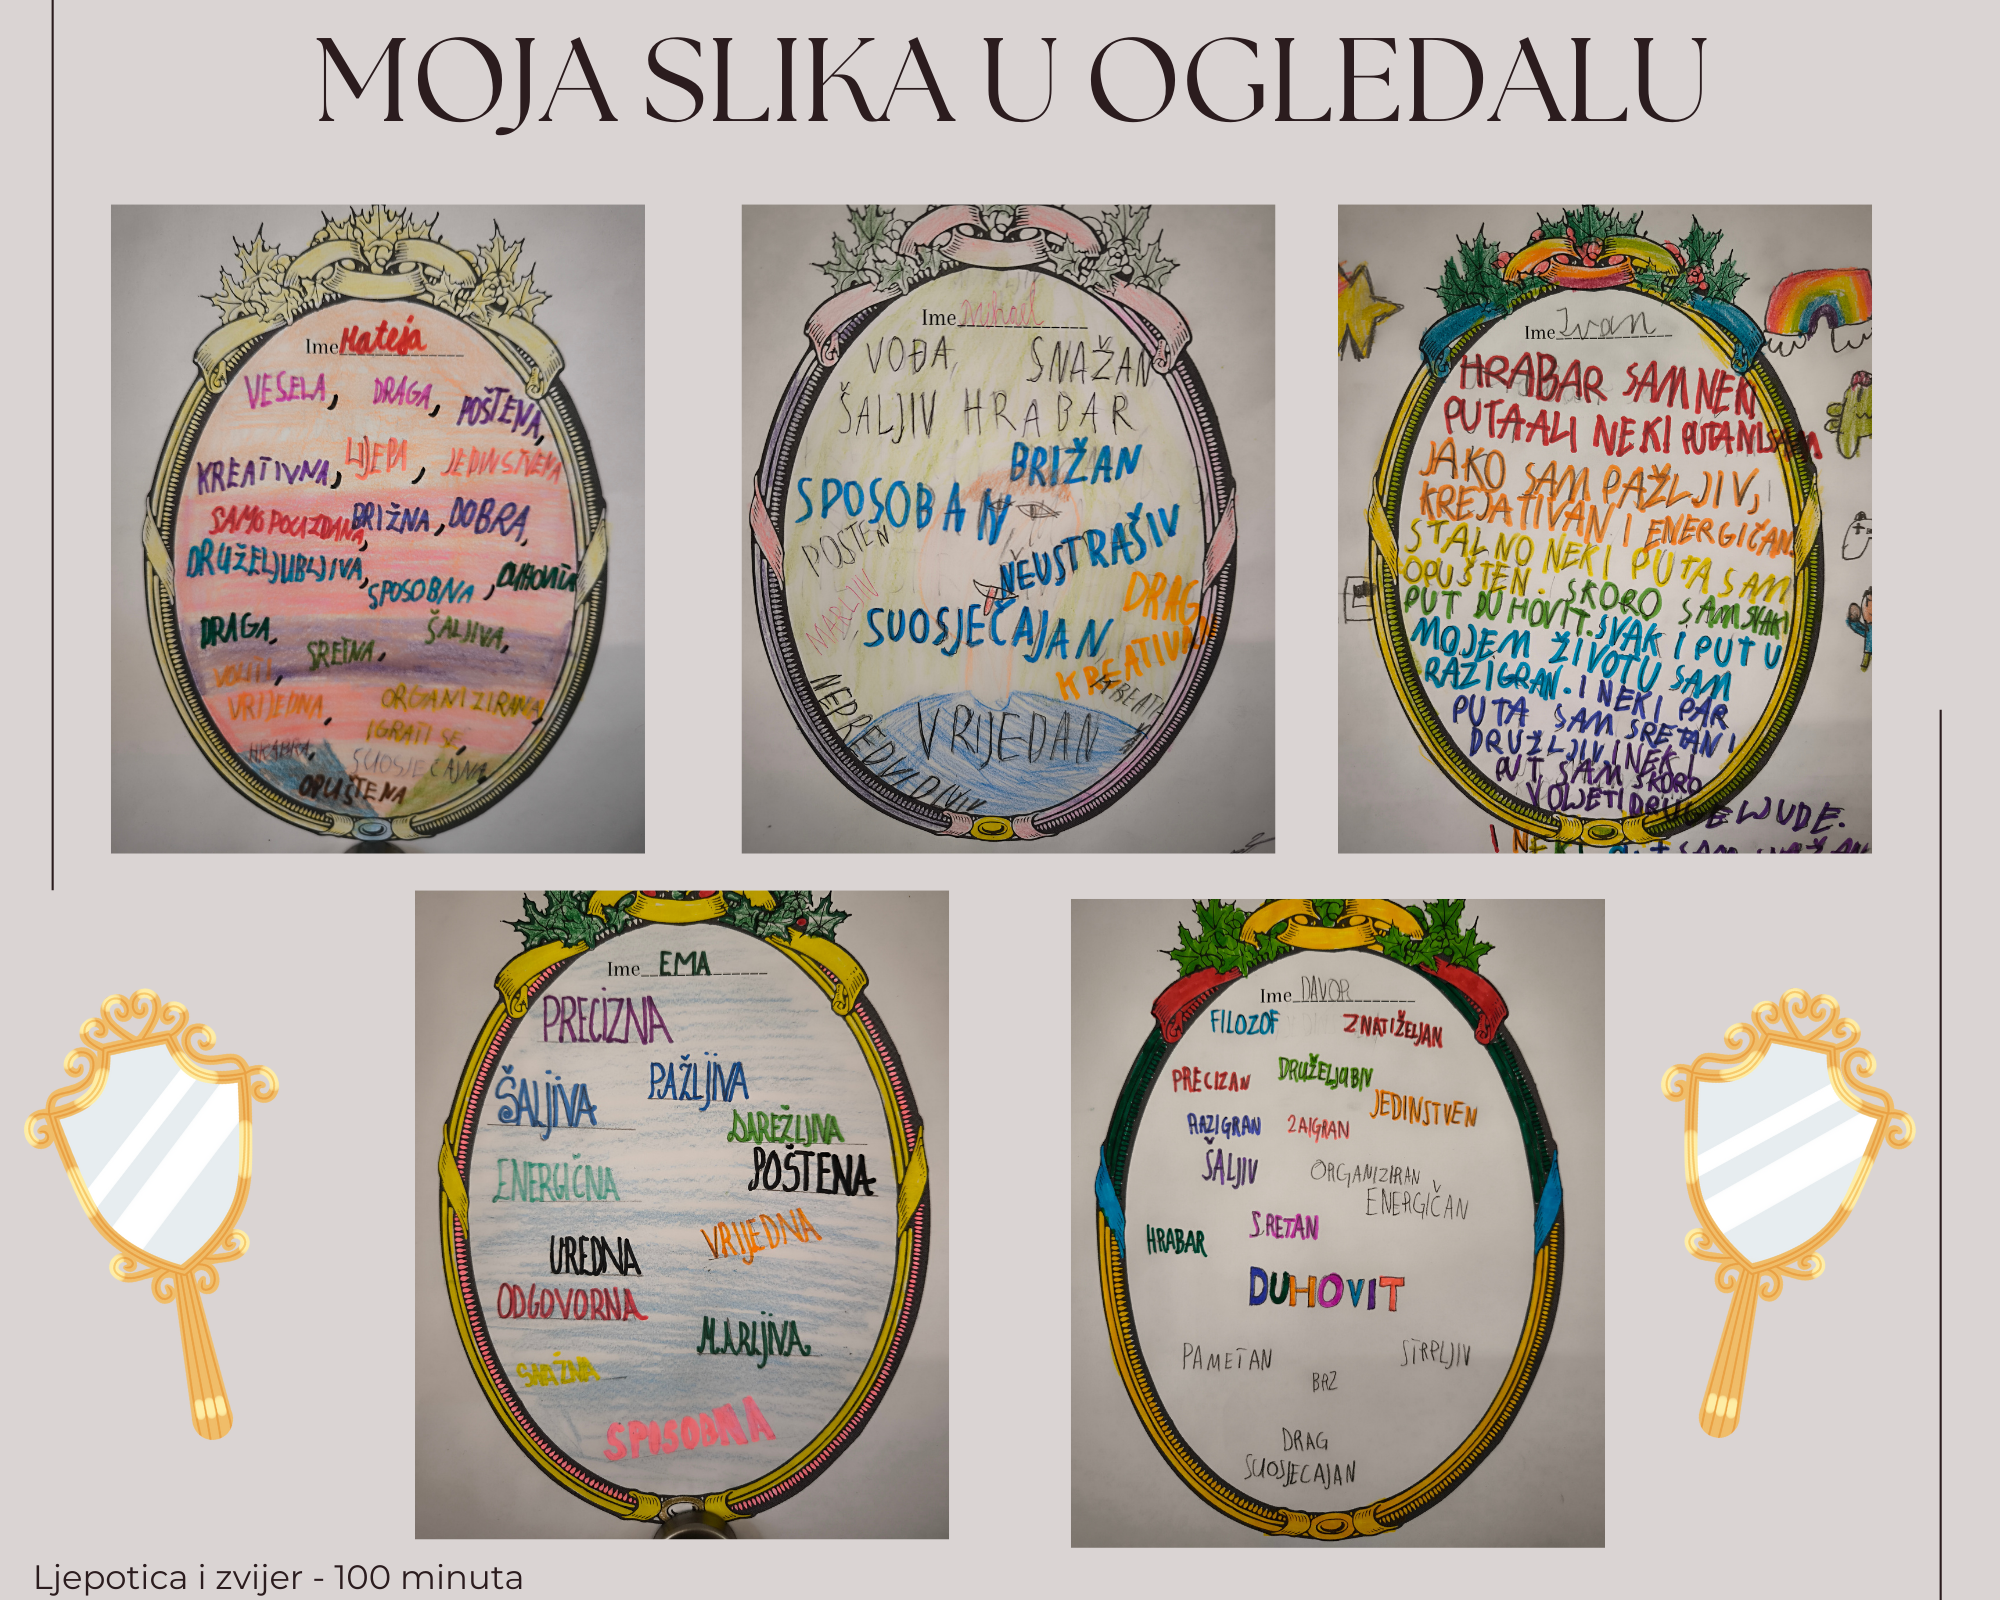 MOJA SLIKA U OGLEDALU
Ime Mateja
VESELA, DRAGA, POŠTENA,
KREATIVNA, LIJEPA, JEDINSTVENA
SAMOPOUZDANA, BRIŽNA, DOBRA,
DRUŽELJUBLJIVA, SPOSOBNA, DUHOVITA
DRAGA, SRETNA, ŠALJIVA,
VRIJEDNA, ORGANIZIRANA,
IGRATI SE,
HRABRA, SUOSJEĆAJNA,
OPUŠTENA
Ime Mihael
VOĐA, SNAŽAN
ŠALJIV HRABAR
BRIŽAN
SPOSOBAN
POSTEN
NEUSTRAŠIV
MARLJIV
DRAG
SUOSJEĆAJAN
KREATIVAN
NEPREDVIDIV
VRIJEDAN
Ime Ivan
HRABAR SAM NEKI
PUTA ALI NEKI PUTA NISAM
JAKO SAM PAŽLJIV,
KREJATIVAN I ENERGIČAN
STALNO NEKI PUTA SAM
OPUŠTEN. SKORO SAM SVAKI
PUT DUHOVIT. SVAKI PUT U
MOJEM ŽIVOTU SAM
RAZIGRAN. I NEKI PAR
PUTA SAM SRETAN I
DRUŽLJIV I NEKI
PUT SAM SKORO
VOLJETI DRUGE LJUDE.
Ime EMA
PRECIZNA
ŠALJIVA PAŽLJIVA
DAREŽLJIVA
ENERGIČNA POŠTENA
UREDNA VRIJEDNA
ODGOVORNA
MARLJIVA
SNAŽNA
SPOSOBNA
Ime DAVOR
FILOZOF ZNATIŽELJAN
PRECIZAN DRUŽELJUBIV
JEDINSTVEN
RAZIGRAN ZAIGRAN
ŠALJIV ORGANIZIRAN
ENERGIČAN
HRABAR SRETAN
DUHOVIT
PAMETAN STRPLJIV
BRZ
DRAG
SUOSJECAJAN
Ljepotica i zvijer - 100 minuta